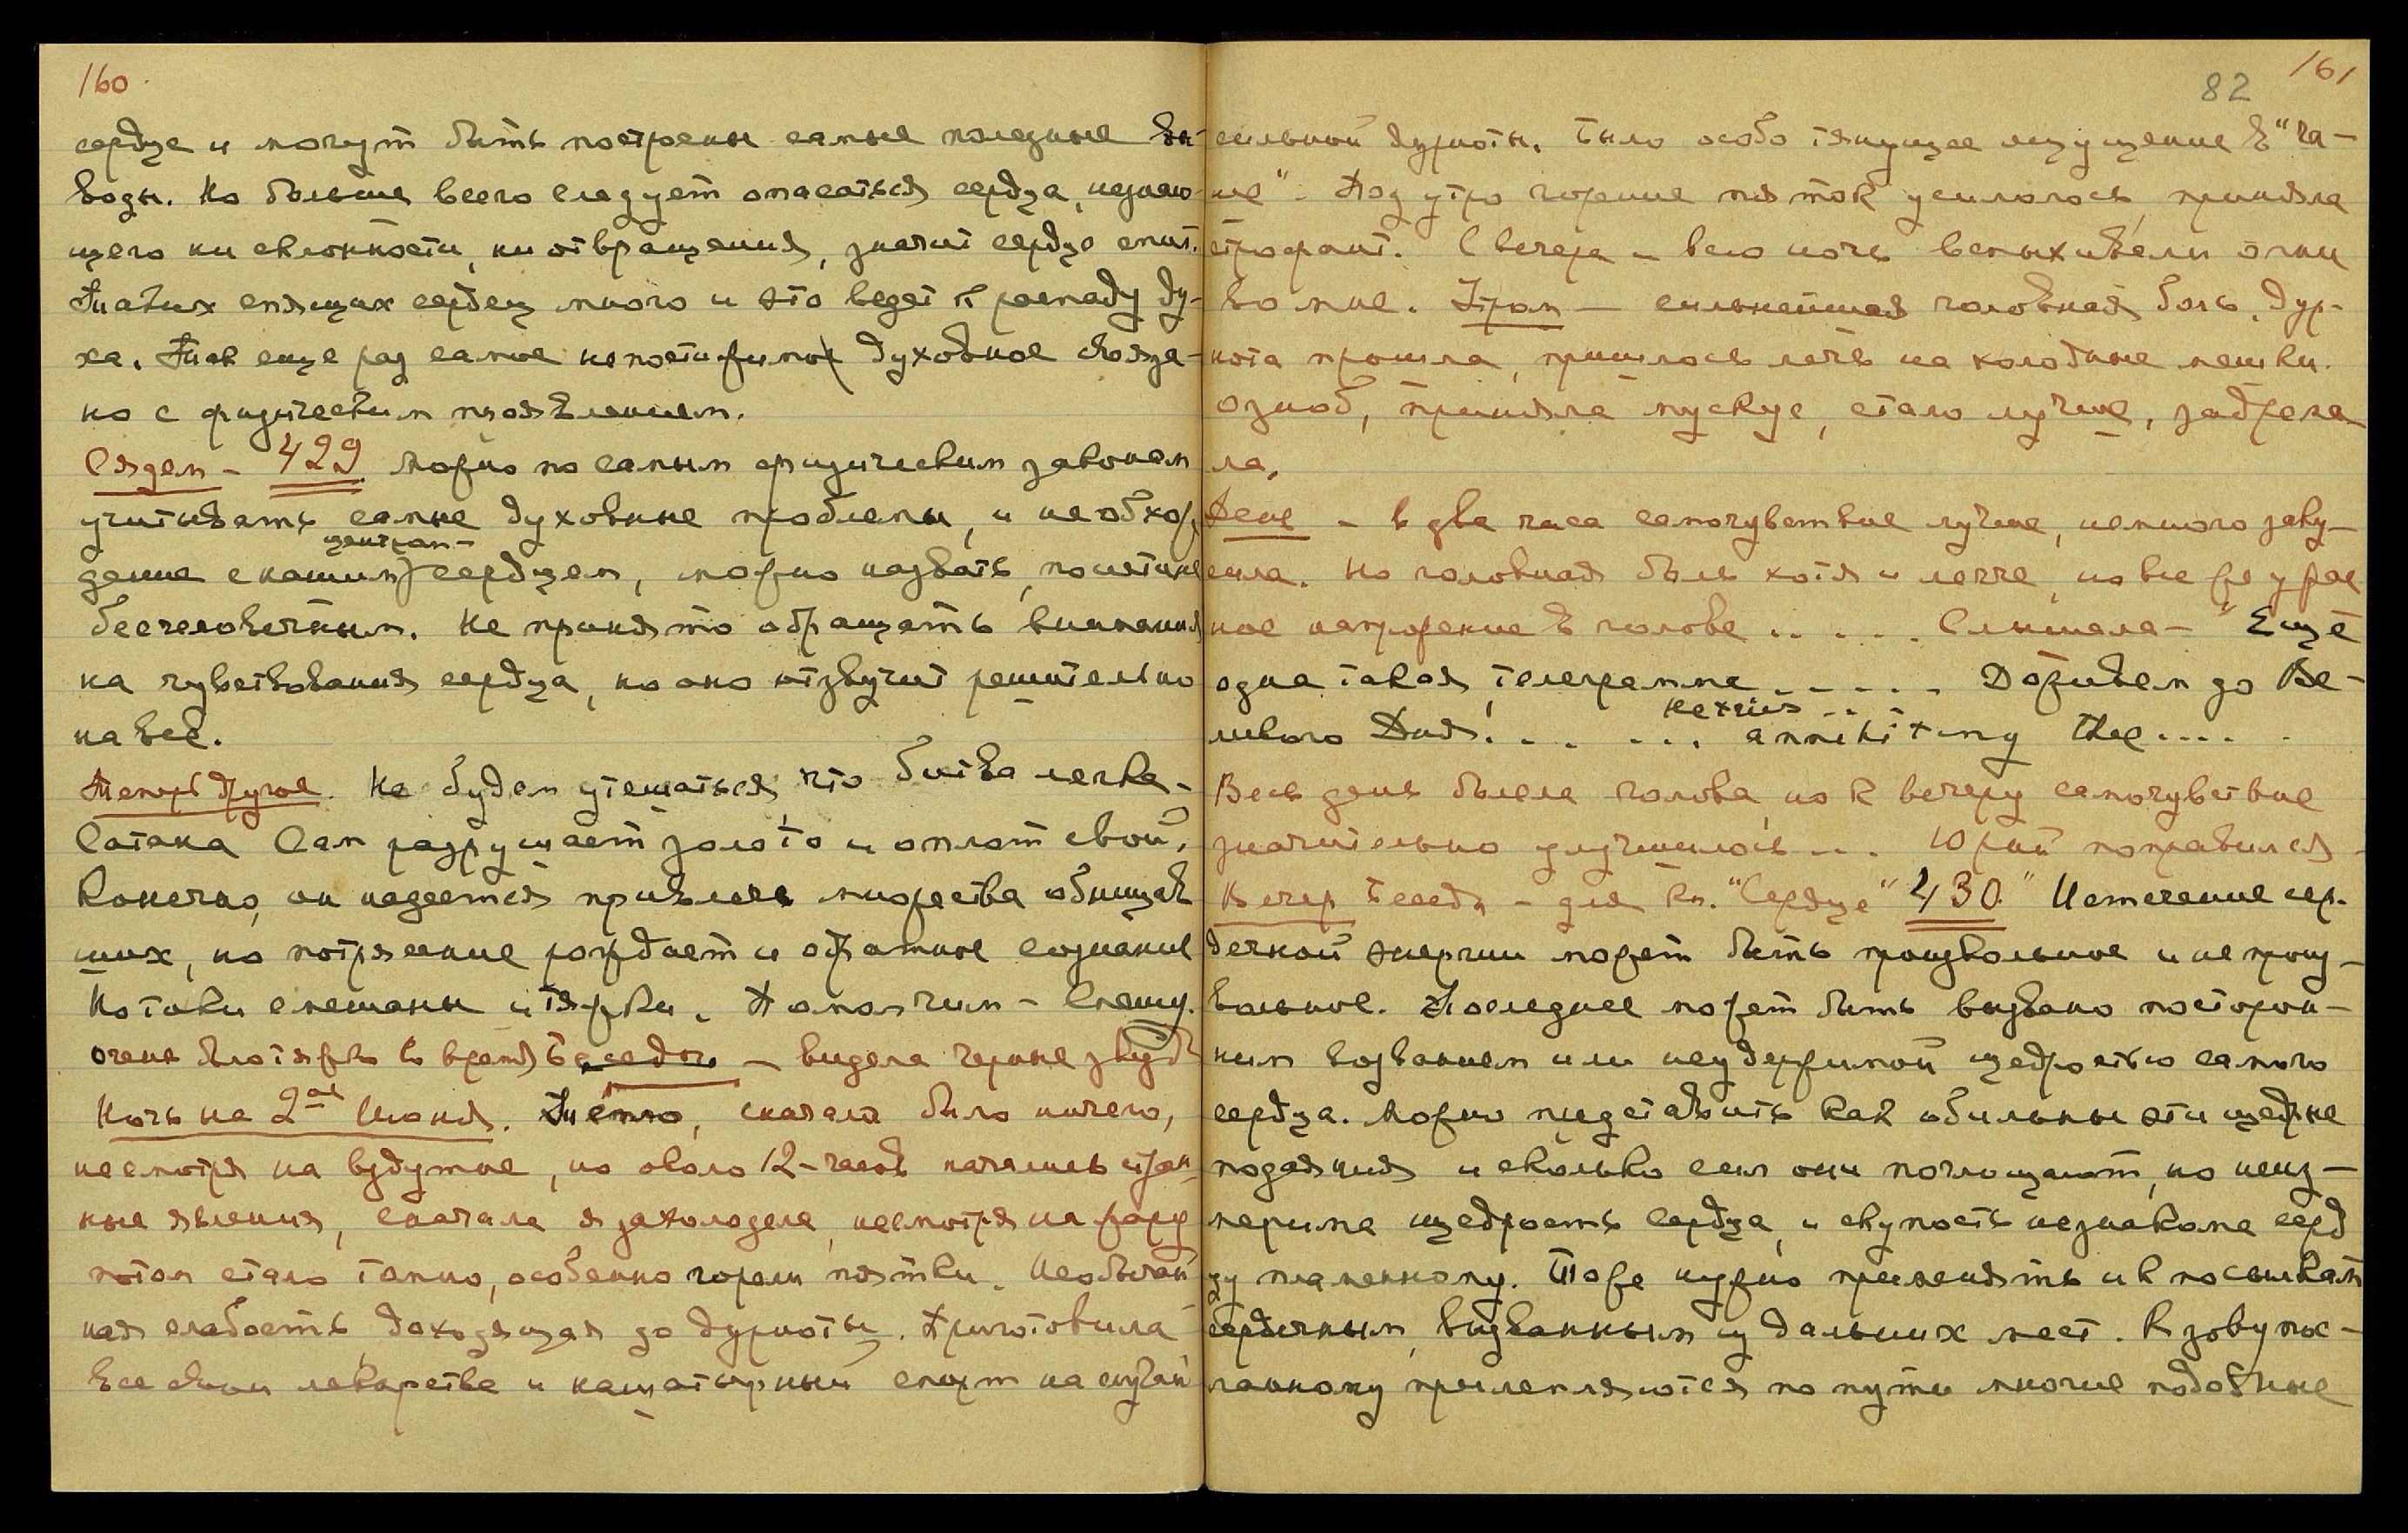 160
сердце и могут быть построены самые полезные вы-
воды. Но больше всего следует опасаться сердца, незнаю-
щего ни склонности, ни отвращения, значит сердце спит.
Таких спящих сердец много и это ведет к распаду ду-
ха. Так еще раз самое непостижимое духовное связа-
но с физическим проявлением.
Сядем – 429 Можно по самым физическим законам
учитывать самые духовные проблемы, и необхож
централ-
дение с нашим сердцем, можно назвать, поистине
бесчеловечным. Не принято обращать внимания
на чувствования сердца, но оно отзвучит решительно
на всё.
Теперь другое. Не будем утешаться, что битва легка –
Сатана Сам разрушает золото и оплот свой.
Конечно, он надеется привлечь множества обнищав
ших, но потрясение рождает и обратное сознание
Но токи смешаны и тяжки. Помолчим – Спешу.
очень было тяжко во время беседы – видела черные звезд
Ночь на 2ое Июня. Темно, сначала было ничего,
несмотря на вздутие, но около 12-часов начались стран
ные явления, сначала я захолодела, несмотря на жару
потом стало томно, особенно горели пятки. Необычай
ная слабость, доходящая до дурноты. Приготовила
все свои лекарства и нашатырный спирт на случай
82
161
сильной дурноты. Было особо тянущее ощущение в "ча-
ше". Под утро горение пяток усилилось, приняла
строфант. С вечера и всю ночь вспыхивали огни
во мне. Утром – сильнейшая головная боль. Дур-
нота прошла, пришлось лечь на холодные мешки.
озноб, приняла мускус, стало лучше, задрема-
ла.
День – в два часа самочувствие лучше, немного заку-
сила. Но головная боль хотя и легче, но все же ужас
ное напряжение в голове . . . . . Слышала – "Ещё
одна такая телеграмма . . . . . Доживем до Ве-
ликого Дня! . . . . . . thee . . . . .
Весь день болела голова, но к вечеру самочувствие
значительно улучшилось . . . Юрий поправился
Вечер Беседы – для кн. "Сердце" 430." Истечение сер-
дечной энергии может быть произвольное и непроиз-
вольное. Последнее может быть вызвано посторон-
ним воззванием или неудержимой щедростью самого
сердца. Можно представить как обильны эти щедрые
подаяния и сколько сил они поглощают, но неиз-
мерима щедрость сердца, и скупость незнакома серд
цу пламенному. Тоже нужно применять и к посылкам
сердечным, вызванным из дальних мест. К зову пос-
ланному прилепляются по пути многие подобные